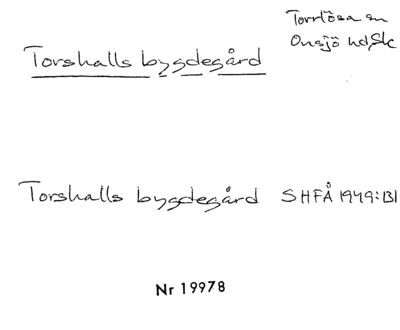 Torrlösa sn
Onsjö hd, Sk
Torshalls bygdegård
Torshalls bygdegård SHFÅ 1949:131
Nr 19978